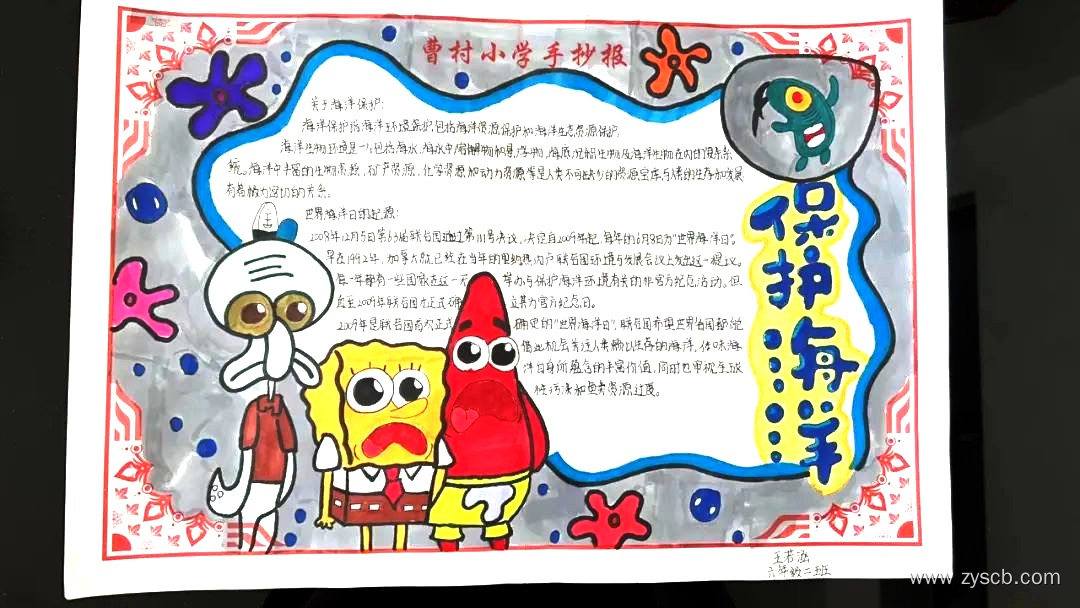 曹村小学手抄报
关于海洋保护:
海洋保护指海洋环境保护,包括海洋资源保护和海洋生态资源保护
海洋生物环境是一个包括海水,海水中溶解物和悬浮物,海底沉积生物及海洋生物在内的复杂系
统。海洋中丰富的生物资源,矿产资源,化学资源和动力资源等是人类不可缺少的资源宝库,与人类的生存和发展
有着极为密切的关系。
世界海洋日的起源:
2008年12月5日第63届联合国通过第111号决议,决定自2009年起,每年的6月8日为"世界海洋日"。
早在1992年,加拿大就已经在当年的里约热内卢联合国环境与发展会议上发出这一提议。
每一年都有一些国家在这一天 举办与保护海洋环境有关的非官方纪念活动。但
直至2009年联合国才正式确 立其为官方纪念日。
2009年是联合国首次正式 确定的"世界海洋日",联合国希望世界各国都能
借此机会关注人类赖以生存的海洋,体味海
洋自身所蕴含的丰富价值,同时也审视全球
性污染和鱼类资源过度。
保护海洋
王若涵
六年级二班
www.zyscb.com